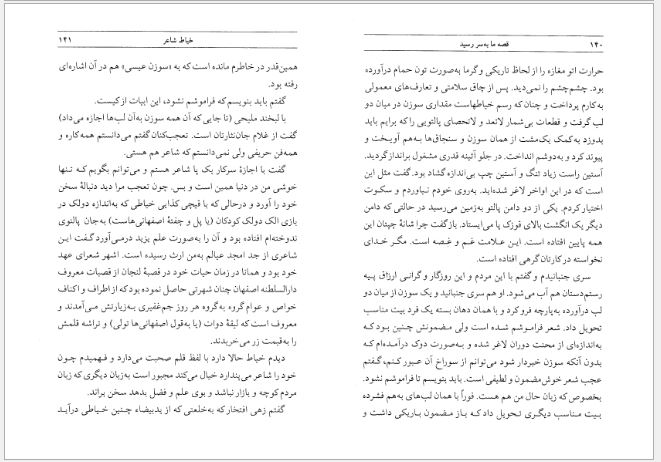 ۱۴۰ قصه ما به‌سر رسید
حرارت اتو مغازه را از لحاظ تاریکی و گرما به‌صورت تون حمام درآورده
بود. چشم‌چشم را نمی‌دید. پس از چاق سلامتی و تعارف‌های معمولی
به‌کارم پرداخت و چنان که رسم خیاطهاست مقداری سوزن در میان دو
لب گرفت و قطعات بی‌شمار لاتعد و لاتحصای پالتویی را که برایم باید
بدوزد به‌کمک یک‌مشت از همان سوزن و سنجاق‌ها به‌هم آویخت و
پیوند کرد و به‌دوشم انداخت. در جلو آئینه قدری مشغول براندازگردید.
آستین راست زیاد تنگ و آستین چپ بی‌اندازه گشاد بود. گفت مثل این
است که در این اواخر لاغر شده‌اید. به‌روی خودم نیاوردم و سکوت
اختیارکردم. یکی از دو دامن پالتو به‌زمین می‌رسید در حالتی که دامن
دیگر یک انگشت بالای قوزک پا می‌ایستاد. بازگفت چرا شانهٔ چپتان این
همه پایین افتاده است. این علامت غم و غصه است. مگر خدای
نخواسته در کارتان‌گرهی افتاده است.
سری جنبانیدم و گفتم با این مردم و این روزگار و گرانی ارزاق پیه
رستم‌دستان هم آب می‌شود. او هم سری جنبانید و یک سوزن از میان دو
لب درآورده به‌پارچه فروکرد و با همان دهان بسته یک فرد بیت مناسب
تحویل داد. شعر فراموشم شده است ولی مضمونش چنین بود که
به‌اندازه‌ای از محنت دوران لاغر شده و به‌صورت دوک درآمده‌ام که
بدون آنکه سوزن خبردار شود می‌توانم از سوراخ آن عبور کنم. گفتم
عجب شعر خوش‌مضمون و لطیفی است. باید بنویسم تا فراموشم نشود.
بخصوص که زبان حال من هم هست. فوراً با همان لب‌های به‌هم فشرده
بیت مناسب دیگری تحویل داد که باز مضمون باریکی داشت و
خیاط شاعر ۱۴۱
همین‌قدر در خاطرم مانده است که به «سوزن عیسی» هم در آن اشاره‌ای
رفته بود.
گفتم باید بنویسم که فراموشم نشود، این ابیات ازکیست.
با لبخند ملیحی (تا جایی که آن همه سوزن به‌آن لب‌ها اجازه می‌داد)
گفت از غلام جان‌نثارتان است. تعجب‌کنان گفتم می‌دانستم همه‌کاره و
همه‌فن حریفی ولی نمی‌دانستم که شاعر هم هستی.
گفت با اجازهٔ سرکار یک پا شاعر هستم و می‌توانم بگویم که تنها
خوشی من در دنیا همین است و بس. چون تعجب مرا دید دنبالهٔ سخن
خود را آورد و درحالی که با قیچی کذایی خیاطی که به‌اندازه دولک در
بازی الک دولک کودکان (یا پل و چفتهٔ اصفهانی‌هاست) به‌جان پالتوی
ندوخته‌ام افتاده بود و آن را به‌صورت علم یزید درمی‌آورد گفت این
شاعری از جد امجد عیالم به‌من ارث رسیده است. اشهر شعرای عهد
خود بود و همانا در زمان حیات خود در قصبهٔ لنجان از قصبات معروف
دارالسلطنه اصفهان چنان شهرتی حاصل نموده بود که از اطراف و اکناف
خواص و عوام گروه به‌گروه هر روز جم‌غفیری به‌زیارتش می‌آمدند و
معروف است که لیقهٔ دوات (یا به‌قول اصفهانی‌ها تولی) و تراشه قلمش
را به‌قیمت زر می‌خریدند.
دیدم خیاط حالا دارد با لفظ قلم صحبت می‌دارد و فهمیدم چون
خود را شاعر می‌پندارد خیال می‌کند مجبور است به‌زبان دیگری که زبان
مردم کوچه و بازار نباشد و بوی علم و فضل بدهد سخن براند.
گفتم زهی افتخار که به‌خلعتی که از یدبیضاء چنین خیاطی درآید